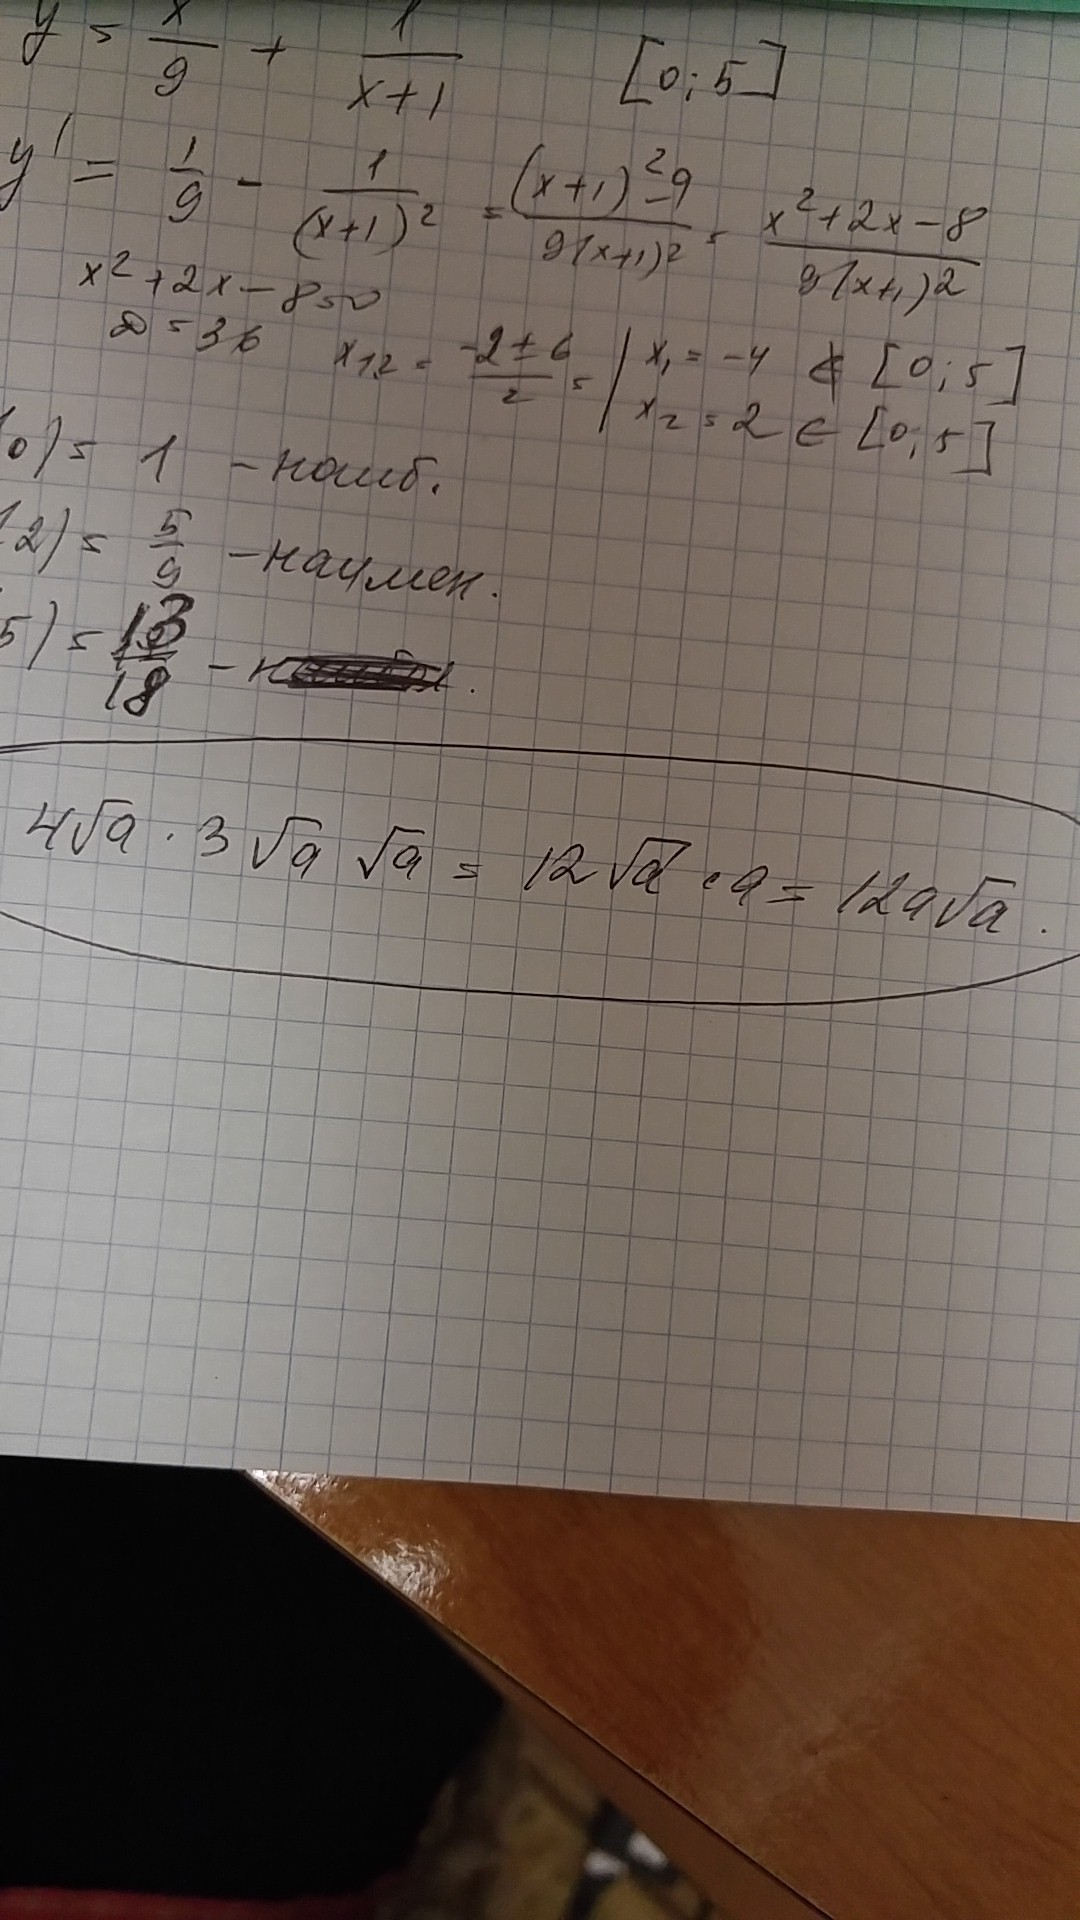 y = x/9 + 1/(x+1) [0; 5]
y' = 1/9 - 1/(x+1)² = ((x+1)² - 9)/(9(x+1)²) = (x² + 2x - 8)/(9(x+1)²)
x² + 2x - 8 = 0
D = 36 x₁,₂ = (-2 ± 6)/2 = | x₁ = -4 ∉ [0; 5]
x₂ = 2 ∈ [0; 5]
(0) = 1 - наиб.
(2) = 5/9 - наимен.
5) = 13/18 -
4√a · 3√a √a = 12√a · a = 12a√a.